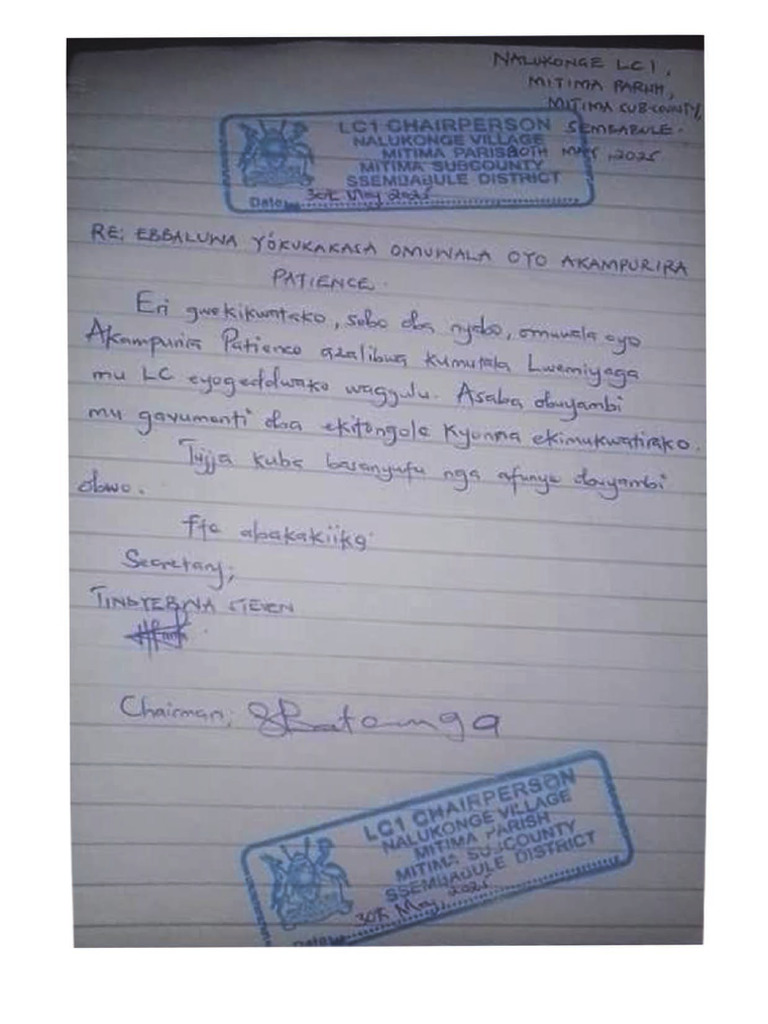 NALUKONGE LC1,
MITIMA PARISH,
MITIMA SUB-COUNTY,
SEMBABULE.
30TH MAY, 2025
LC1 CHAIRPERSON
NALUKONGE VILLAGE
MITIMA PARISH
MITIMA SUBCOUNTY
SSEMBABULE DISTRICT
Date 30th May 2025
RE: EBBALUWA YÓKUKAKASA OMUWALA OYO AKAMPURIRA
PATIENCE.
Eri gwekikwatako, sebo oba nyabo, omuwala oyo
Akampurira Patience azalibwa kumutala Lwemiyaga
mu LC eyogeddwako waggulu. Asaba obuyambi
mu gavumenti oba ekitongole kyonna ekimukwatirako.
Tujja kuba basanyufu nga afunye obuyambi
obwo.
Ffe abakakiiko
Secretary;
TINDYEBWA STEVEN
Chairman;
LC1 CHAIRPERSON
NALUKONGE VILLAGE
MITIMA PARISH
MITIMA SUBCOUNTY
SSEMBABULE DISTRICT
Date 30th May, 2025